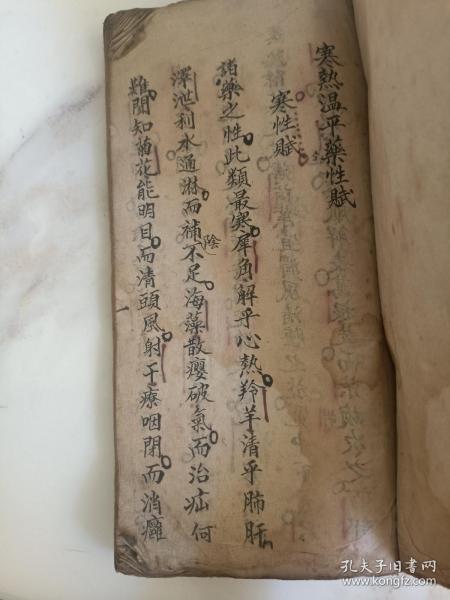 寒熱温平藥性賦
寒性賦
諸藥之性此類最寒犀角解乎心熱羚羊清乎肺肝
澤泄利水通淋而補陰不足海藻散癭破氣而治疝何
難聞知菊花能明目而清頭風射干療咽閉而消癰
孔夫子旧书网
www.kongfz.com